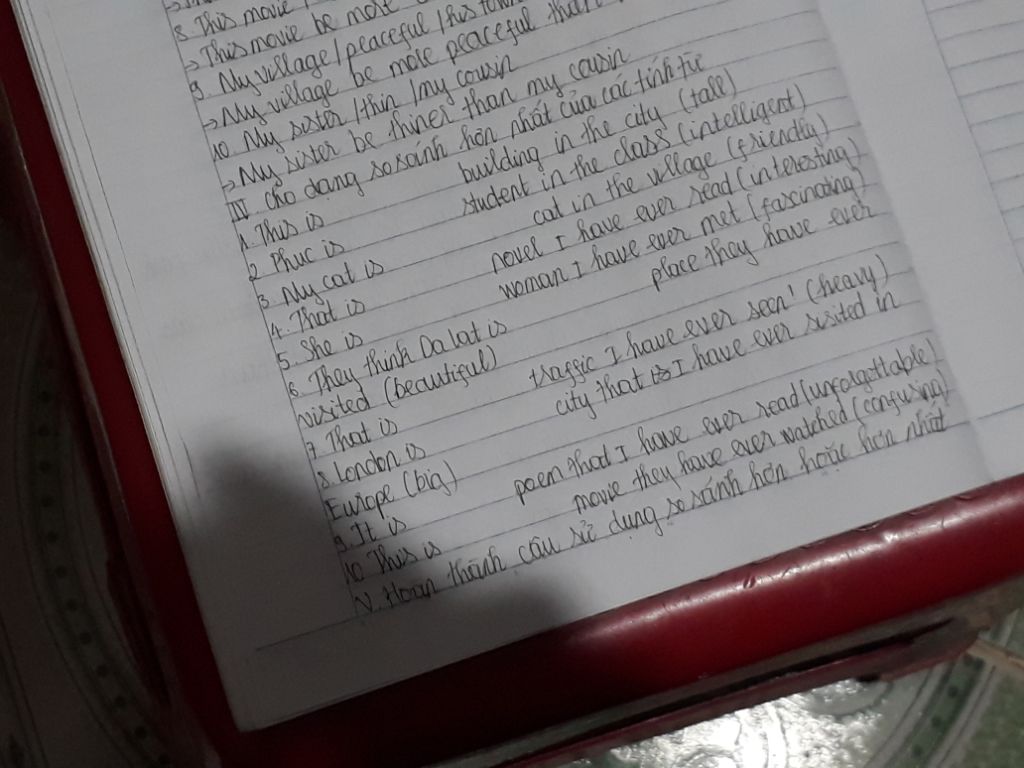 8. This movie
→ This movie be most
9. My village / peaceful / his town
→ My village be more peaceful than
10. My sister / thin / my cousin
→ My sister be thiner than my cousin
IV. Cho dạng so sánh hơn nhất của các tính từ
1. This is building in the city (tall)
2. Phuc is student in the class (intelligent)
3. My cat is cat in the village (friendly)
4. That is novel I have ever read (interesting)
5. She is woman I have ever met (fascinating)
6. They think Da Lat is place they have ever
visited (beautiful)
7. That is traffic I have ever seen' (heavy)
8. London is city that I have ever visited in
Europe (big)
9. It is poem that I have ever read (unforgettable)
10. This is movie they have ever watched (confusing)
V. Hoàn thành câu sử dụng so sánh hơn hoặc hơn nhất